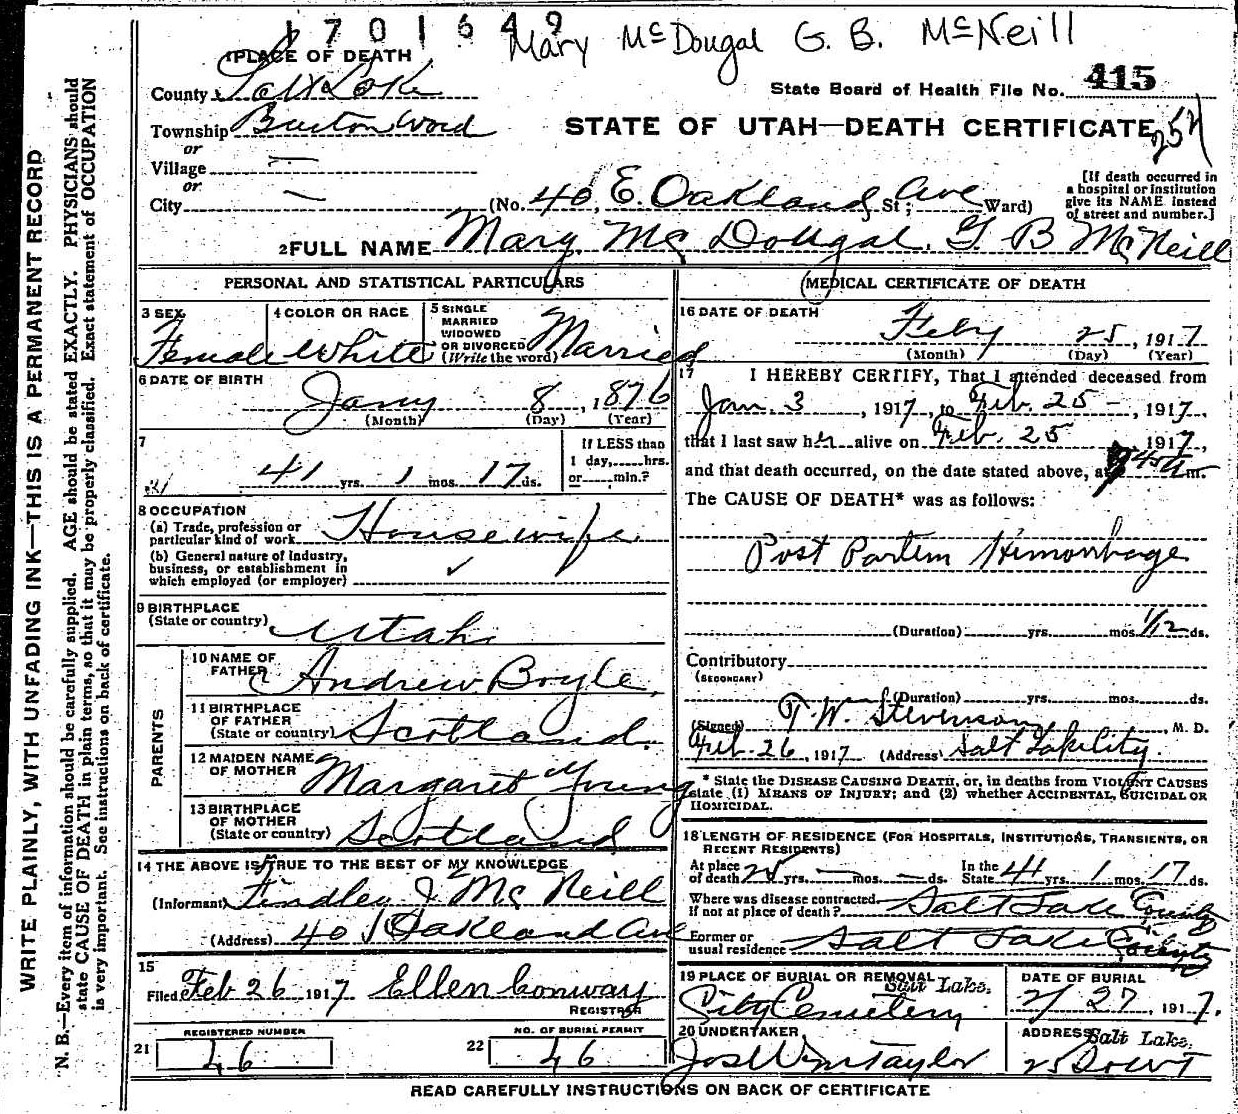 1701649
Mary McDougal G. B. McNeill
1 PLACE OF DEATH
County Salt Lake
State Board of Health File No. 415
Township Burton Ward
STATE OF UTAH—DEATH CERTIFICATE
254
or
Village —
or
City —
(No. 40, E. Oakland St; Ave Ward)
[If death occurred in
a hospital or institution
give its NAME instead
of street and number.]
2 FULL NAME Mary Mc Dougal. G. B McNeill
PERSONAL AND STATISTICAL PARTICULARS
3 SEX Female
4 COLOR OR RACE White
5 SINGLE
MARRIED
WIDOWED
OR DIVORCED
(Write the word) Married
6 DATE OF BIRTH
Jany 8, 1876
(Month) (Day) (Year)
7
41 yrs. 1 mos. 17 ds.
If LESS than
1 day,.....hrs.
or.....min.?
8 OCCUPATION
(a) Trade, profession or
particular kind of work Housewife
(b) General nature of industry,
business, or establishment in
which employed (or employer)
9 BIRTHPLACE
(State or country) Utah
PARENTS
10 NAME OF
FATHER Andrew Boyle
11 BIRTHPLACE
OF FATHER
(State or country) Scotland
12 MAIDEN NAME
OF MOTHER Margaret Young
13 BIRTHPLACE
OF MOTHER
(State or country) Scotland
14 THE ABOVE IS TRUE TO THE BEST OF MY KNOWLEDGE
(Informant) Findley J McNeill
(Address) 40 Oakland Ave
15
Filed Feb 26 1917 Ellen Conway
REGISTRAR
21 REGISTERED NUMBER
46
22 NO. OF BURIAL PERMIT
46
MEDICAL CERTIFICATE OF DEATH
16 DATE OF DEATH
Feby 25, 1917
(Month) (Day) (Year)
17
I HEREBY CERTIFY, That I attended deceased from
Jan. 3, 1917, to Feb. 25, 1917,
that I last saw her alive on Feb. 25, 1917,
and that death occurred, on the date stated above, at m.
The CAUSE OF DEATH* was as follows:
Post Partem Himorrhage
(Duration) yrs. mos. 1/12 ds.
Contributory
(SECONDARY)
(Duration) yrs. mos. ds.
(Signed) T. W. Stevenson, M. D.
Feb. 26, 1917 (Address) Salt Lake City.
* State the DISEASE CAUSING DEATH, or, in deaths from VIOLENT CAUSES
state (1) MEANS OF INJURY; and (2) whether ACCIDENTAL, SUICIDAL OR
HOMICIDAL.
18 LENGTH OF RESIDENCE (FOR HOSPITALS, INSTITUTIONS, TRANSIENTS, OR
RECENT RESIDENTS)
At place
of death yrs. — mos. — ds.
In the
State 41 yrs. 1 mos. 17 ds.
Where was disease contracted.
if not at place of death? Salt Lake County
Former or
usual residence Salt Lake County
19 PLACE OF BURIAL OR REMOVAL Salt Lake.
City Cemetery
DATE OF BURIAL
2/27, 1917.
20 UNDERTAKER
Jos Wm Taylor
ADDRESS Salt Lake.
READ CAREFULLY INSTRUCTIONS ON BACK OF CERTIFICATE
WRITE PLAINLY, WITH UNFADING INK—THIS IS A PERMANENT RECORD
N. B.—Every item of information should be carefully supplied. AGE should be stated EXACTLY. PHYSICIANS should
state CAUSE OF DEATH in plain terms, so that it may be properly classified. Exact statement of OCCUPATION
is very important. See instructions on back of certificate.